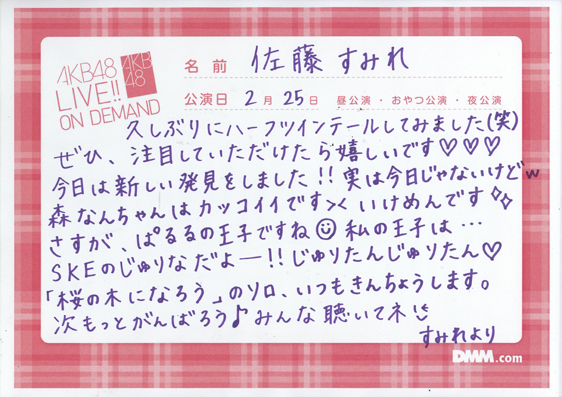 AKB48
LIVE!!
ON DEMAND
AKB
48
名前 佐藤 すみれ
公演日 2月 25日 昼公演・おやつ公演・夜公演
久しぶりにハーフツインテールしてみました(笑)
ぜひ、注目していただけたら嬉しいです♡♡♡
今日は新しい発見をしました!!実は今日じゃないけどw
森なんちゃんはカッコイイです>< いけめんです
さすが、ぱるるの王子ですね☺私の王子は…
SKEのじゅりなだよー!!じゅりたんじゅりたん♡
「桜の木になろう」のソロ、いつもきんちょうします。
次もっとがんばろう♪みんな聴いてネ
すみれより
DMM.com